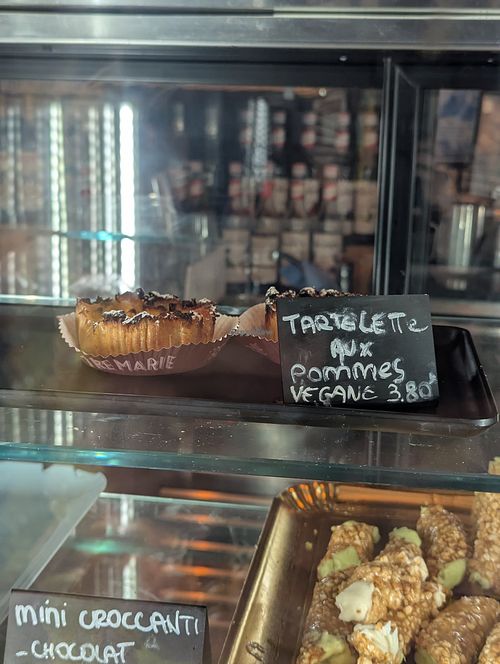 TARTELETTE
AUX
POMMES
VEGANE 3.80
REMARIE
MINI CROCCANTI
- CHOCOLAT